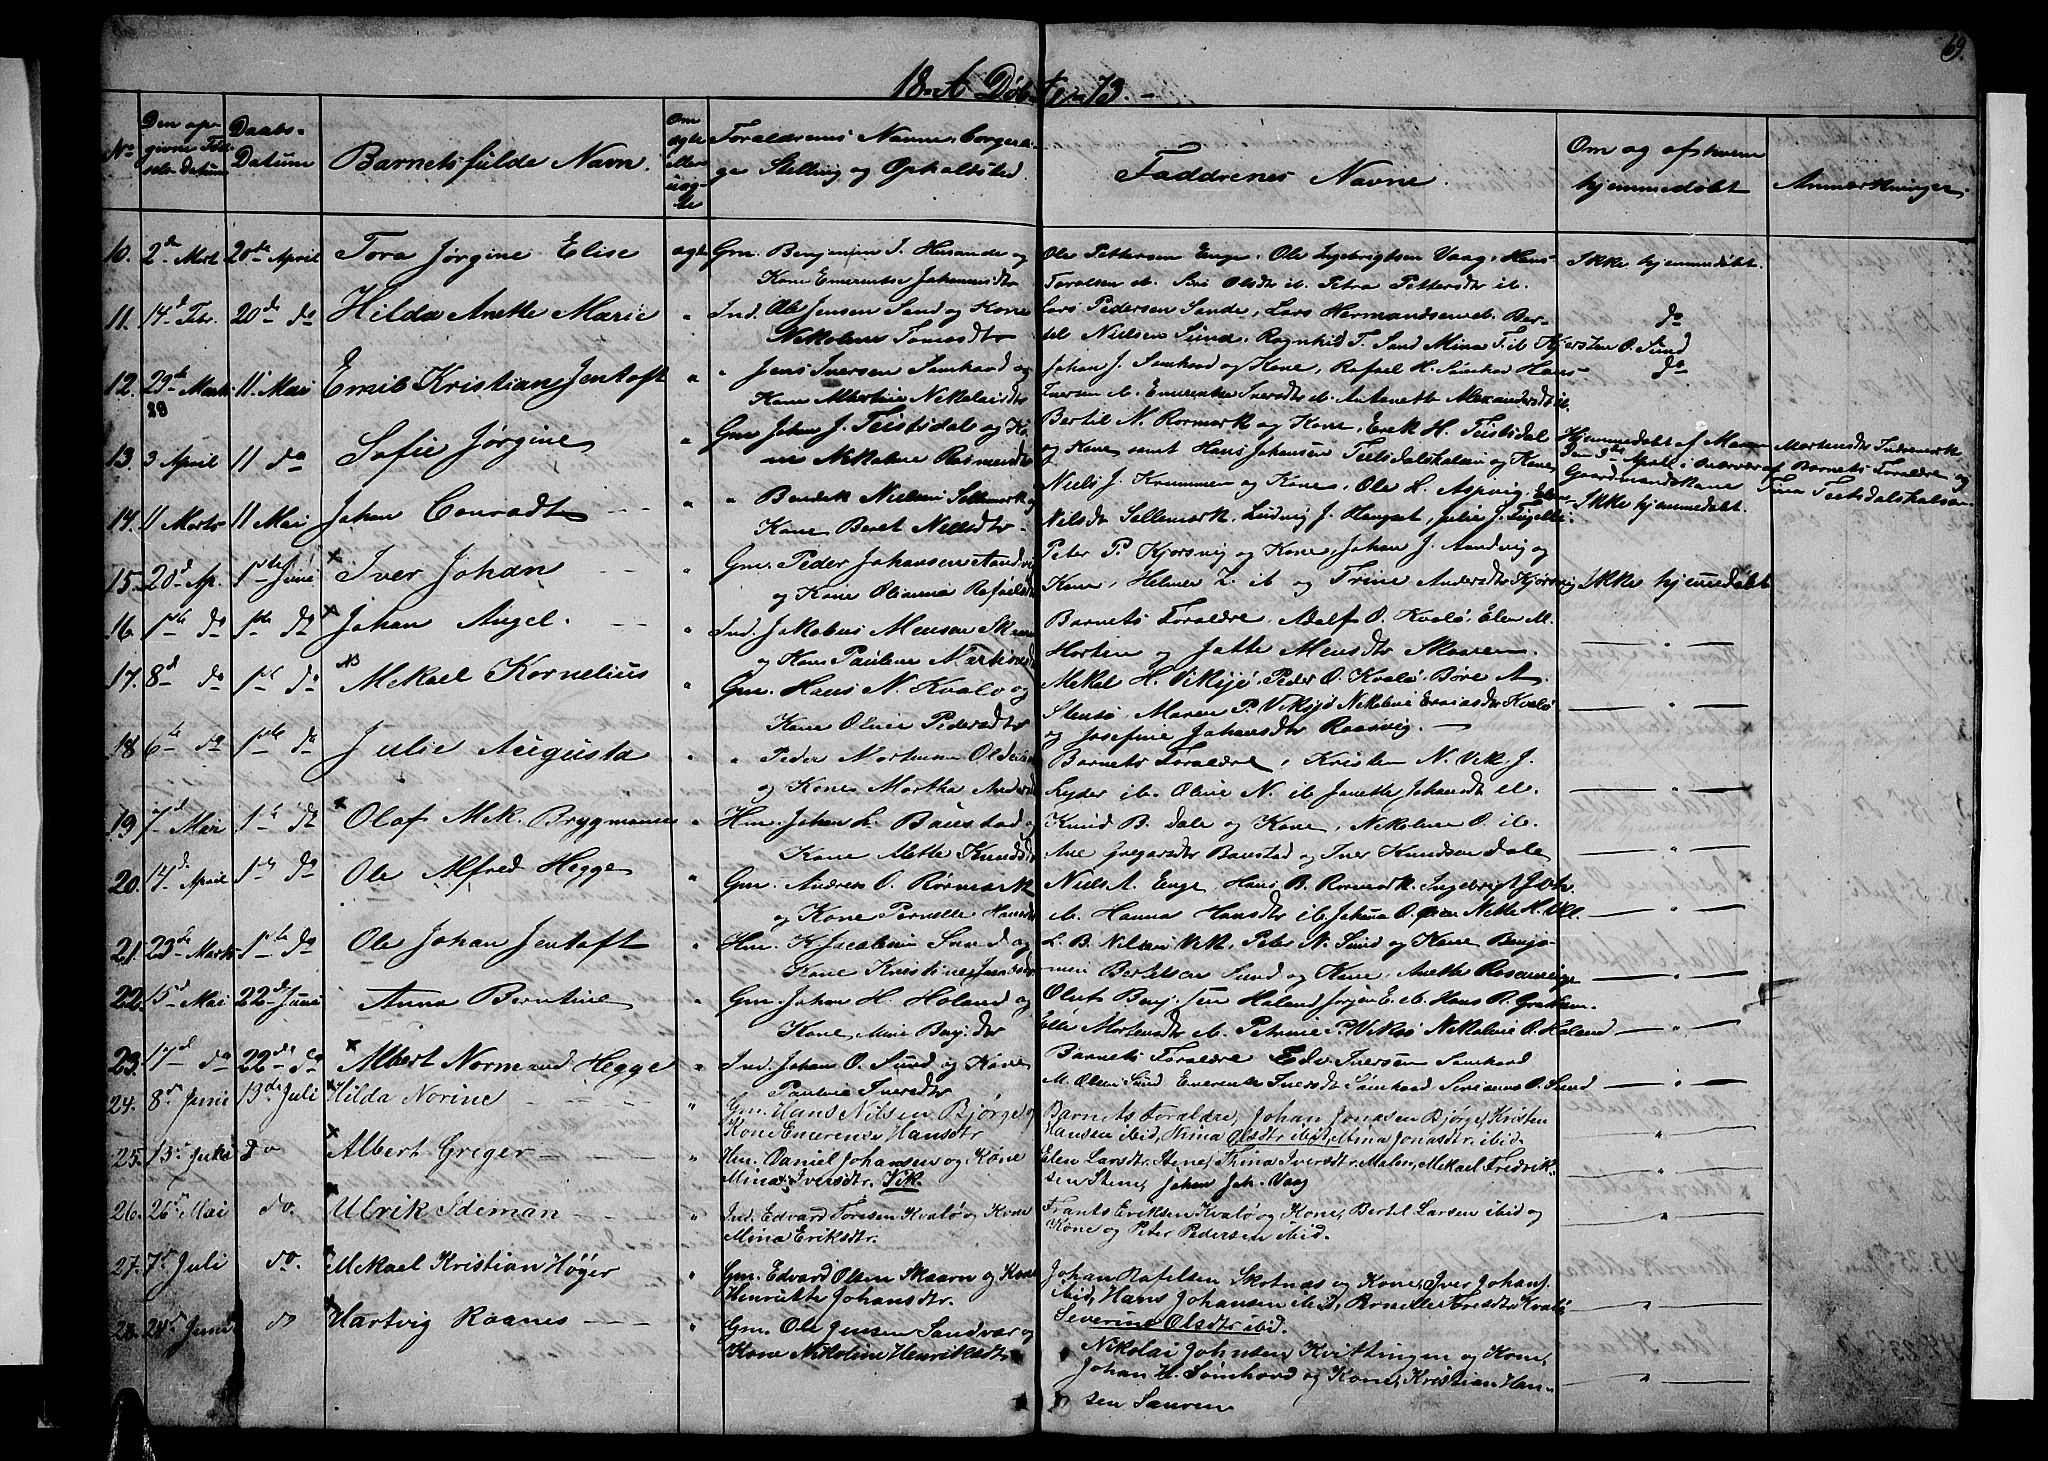 69.
18 A Døbte 73.
No
Den opgivne Fødselsdatum
Daabs-Datum
Barnets fulde Navn.
Om ægte eller uægte
Forældrenes Navne, Borgerlige Stilling og Opholdsted.
Faddrenes Navne.
Om og af hvem hjemmedøbt
Anmærkninger
10. 2de Marts 20de April Tora Jørgine Elise ægte Gm. Benjamin J. Husande og
Kone Emerentse Johannesdtr
Ole Pettersen Enge, Ole Ingebrigtsen Vaag, Hans
Toralsen ib. Olsdtr ib. Petra Pettersdtr ib.
Ikke hjemmedøbt.
11. 14d Febr. 20de do Hilda Anette Marie " Ind. Ole Jensen Sund og Kone
Nikoline Tomasdtr
Lars Pedersen Sande, Lars Hermandsen ib. Ber-
del Nielsen Sund, Ragnhild T. Sund Mina T. ib Kjersten O. Sund
do
12. 29de Marts 11 Mai Emil Kristian Jentoft " " Jens Iversen Sømhovd og
88 Kone Martine Nikolaidtr
Johan J. Sømhovd og Kone, Rafael H. Sømhovd Hans
Iversen ib. Emerentse Iversdtr ib. Antonette Alexandersdtr ib.
do
13. 3 April 11 do Sofie Jørgine " Gm Johan J. Teistsdal og Ko-
ne Nikoline Rasmusdtr
Bertil N. Rørmark og Kone, Erik H. Teistsdal
og Kone samt Hans Johansen Teistsdalskalsen og Kone
Hjemmedøbt af Maren Mortensdtr Indremark
Den 3de April i Overvær af Barnets Forældre og
Gaardmandskone Tina Teistsdalskalsen
14. 11 Marts 11 Mai Johan Conradt " " Bendik Nielsen Sellemark og
Kone Beret Nielsdtr
Niels J. Krummen og Kone, Ole H. Aspvig,
Nilsdtr Sellemark, Ludvig J. Hengset, Julie J.
Ikke hjemmedøbt.
15. 20d Ap. 1ste Juni x Iver Johan " Gm. Peder Johansen Aandvig
og Kone Olianna Rafaelsdtr
Peter P. Kjørsvig og Kone, Johan J. Aandvig og
Kone, Helmer Z. ib og Trine Andersdtr Kjørsvig
Ikke hjemmedøbt
16. 1ste do 1ste do x Johan Angel. " Ind. Jakobus Monsen Skaaren
og Kone Pauline Martinsdtr
Barnets Forældre, Adolf O. Kvalø, Elen M.
Horten og Jette Monsdtr Skaaren.
— " —
17. 8d do 1ste do NB Mekael Kornelius " Gm. Hans N. Kvalø og
Kone Oline Pedersdtr
Mekel H. Viksjø, Peder O. Kvalø, Børe A.
Stensø, Maren P. Viksjø Nikoline Eriasdtr Kvalø
og Josefine Johansdtr Raasvig.
— " —
18 6te do 1ste do Julie Augusta " " Peder Mortensen
og Kone Martha Andersdtr
Barnets Forældre, Kristen N. Vik, J.
Lyder ib. Oline N. ib Janette Johansdtr ib.
— " —
19 7d Mai 1ste do x Olaf Mek. Brygmann " Hm. Johan L. Baustad og
Kone Mette Knudsdtr
Knud B. Dale og Kone, Nikoline O. ib.
Ane Gregarsdtr Baustad og Iver Knudsen Dale
— " —
20. 14de April 1ste do Ole Alfred Hegge " Gm. Andreas O. Rørmark
og Kone Pernelle Hansdtr
Niels A. Enge Hans B. Rørmark, Ingebrigt Joh.
ib. Hanna Hansdtr ib Johna O. Nette H. Vik.
— " —
21. 22de Marts 1ste do Ole Johan Jentoft " Hm. K. Jacobsen Sund og
Kone Kristine Jensdtr
L. B. Nilsen Vik, Peter N. Sund og Kone Benja-
min Bertelsen Sund og Kone, Anette
— " —
22. 15d Mai 22de Juni Anna Berntine " Gm. Johan H. Holand og
Kone Mine Benj.dtr
Oluf Benj.sen Holand, Jørgen E. ib. Hans P.
Mortensdtr ib. Petrine P. Viksjø Nikoline O. Holand
— " —
23. 17d do 22de do x Albert Normand Hegge " Ind. Johan O. Sund og Kone
Pauline Iversdtr
Barnets Forældre Edv. Iversen Sømhovd
M. Olsen Sund Emerentse Iversdtr Sømhovd Serianna O. Sund
— " —
24. 8de Juni 13de Juli x Hilda Norine " Gm. Hans Nilsen Bjørge og
Kone Emerense Hansdtr
Barnets Forældre, Johan Jonassen Bjørge, Kristen
Hansen ibid, Nina Olsdtr ibid, Mina Jonasdtr. ibid.
"
25. 13de Juli do x Albert Greger " Hm. Daniel Johansen og Kone
Mina Iversdtr. Vik.
Elen Larsdtr. Stene, Trina Iversdtr. Malen, Mekael Fredrik-
sen Stene, Johan Joh. Vaag
"
26. 26de Mai do. x Ulrik Ideman " Ind. Edvard Toresen Kvalø og Kone
Mina Eriksdtr.
Frants Eriksen Kvalø og Kone, Bertel Larsen ibid og
Kone og Peter Pedersen ibid.
"
27. 7de Juli do. x Mekael Kristian Høyer " Gm. Edvard Olsen Skaarn og Kone
Henrikke Johansdtr.
Johan Rafelsen Skotnæs og Kone, Iver Johans.
ibid, Hans Johansen ibid, Ronelle Kvalø
Severine Olsdtr ibid.
"
28. 20de Juni do x Hartvig Raanes " Gm. Ole Jensen Sandvær og
Kone Nikoline Henriksdtr
Nikolai Johnsen Kvittingen og Kone,
Johan H. Sømhovd og Kone, Kristian Han-
sen Sauren
"